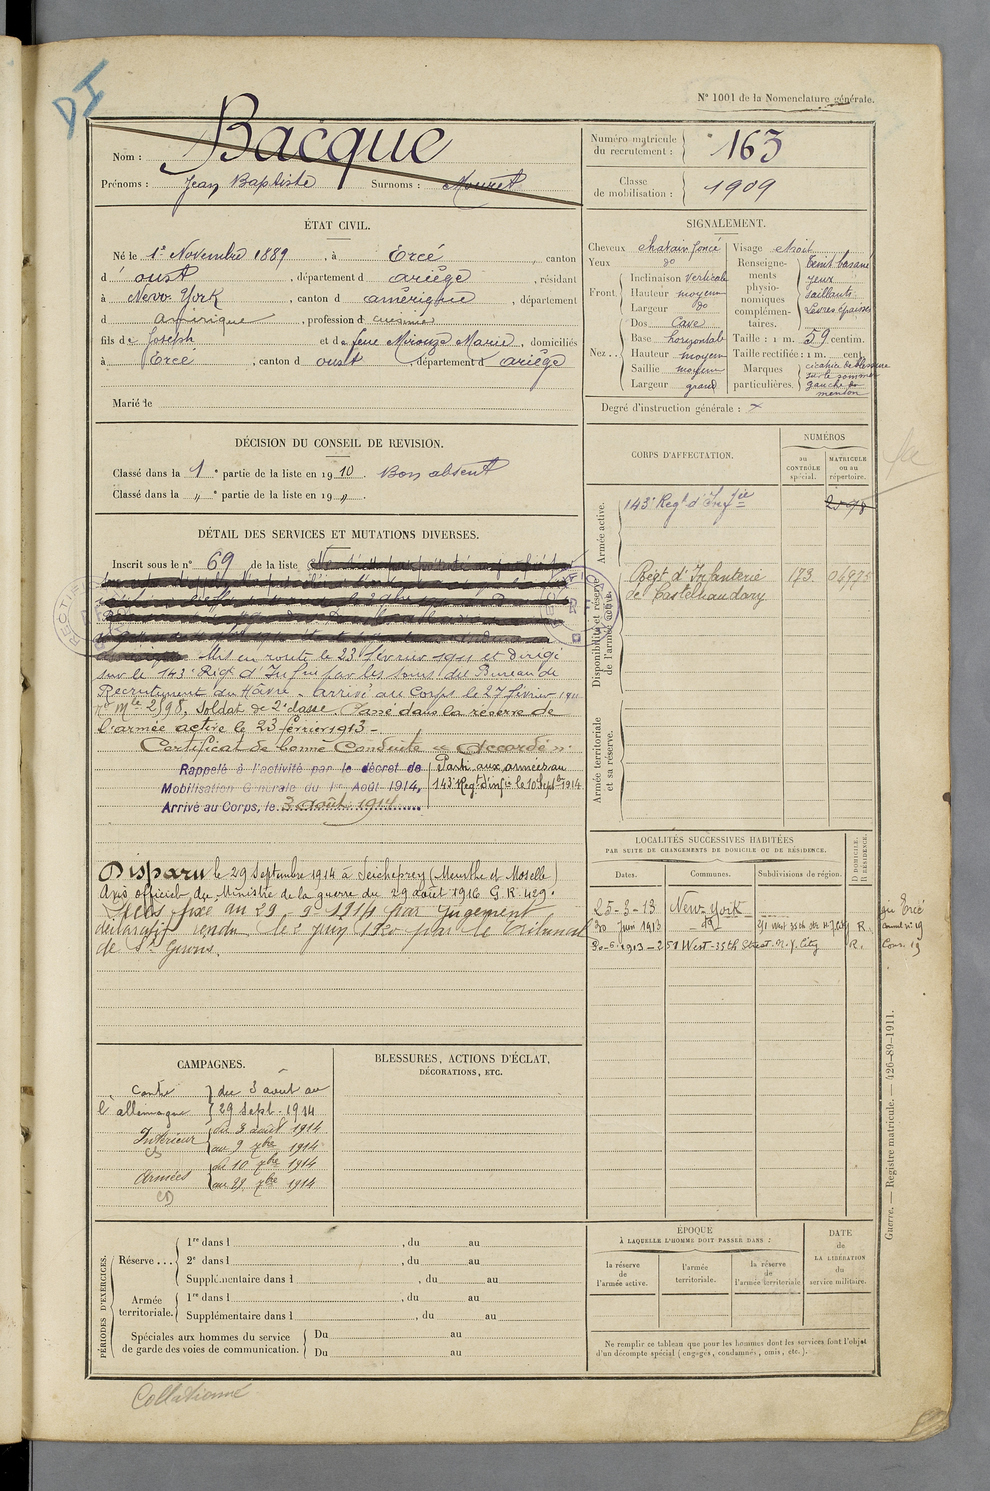 DI
N° 1001 de la Nomenclature générale.
Nom : Bacque
Prénoms : Jean Baptiste Surnoms : Mouret
Numéro matricule du recrutement : 163
Classe de mobilisation : 1909
ÉTAT CIVIL.
Né le 1er Novembre 1889, à Ercé, canton
d' oust, département d ariège, résidant
à New-York, canton d amérique, département
d Amérique, profession d cuisinier
fils de Joseph et de feue Mirouze Marie, domiciliés
à Ercé, canton d oust, département d ariège
Marié le
SIGNALEMENT.
Cheveux chatain foncé
Yeux do
Front. Inclinaison verticale
Hauteur moyenne
Largeur do
Nez... Dos Cave
Base horizontale
Hauteur moyenne
Saillie moyenne
Largeur grand
Visage étroit
Renseignements physionomiques complémentaires. Teint basané
yeux
saillants
Lèvres épaisses
Taille : 1 m. 59 centim.
Taille rectifiée : 1 m. cent.
Marques particulières. cicatrice de blessure
sur le sommet
gauche du
menton
Degré d'instruction générale : x
DÉCISION DU CONSEIL DE REVISION.
Classé dans la 1e partie de la liste en 1910. Bon absent
Classé dans la " e partie de la liste en 19 ".
DÉTAIL DES SERVICES ET MUTATIONS DIVERSES.
Inscrit sous le n° 69 de la liste
Mis en route le 23 février 1911 et dirigé
sur le 143e Régt d'Infrie par les soins du Bureau de
Recrutement du Hâvre. Arrivé au Corps le 27 février 1911
n° mle 2598, Soldat de 2e classe. Passé dans la réserve de
l'armée active le 23 février 1913 -
Certificat de bonne Conduite « Accordé ».
Rappelé à l'activité par le décret de
Mobilisation Générale du 1er Août 1914,
Arrivé au Corps, le 3 Août 1914
Parti aux armées au
143e Regt d'infie le 10 Sept 1914
Disparu le 29 Septembre 1914 à Seicheprey (Meurthe et Moselle)
Avis officiel du Ministre de la guerre du 29 août 1916 G.K. 429.
Décès fixé au 29. 9. 1914 par jugement
déclaratif rendu le 2 juin 1920 par le tribunal
de St Girons.
CORPS D'AFFECTATION.
NUMÉROS
au CONTRÔLE spécial.
MATRICULE ou au répertoire.
Armée active.
143e Regt d'Infie 2598
Disponibilité et réserve de l'armée active.
Régt d'Infanterie 173
de Castelnaudary
Armée territoriale et sa réserve.
LOCALITÉS SUCCESSIVES HABITÉES
PAR SUITE DE CHANGEMENTS DE DOMICILE OU DE RÉSIDENCE.
Dates. Communes. Subdivisions de région. D DOMICILE. R RÉSIDENCE.
25-3-13 New-York
20 Juin 1913 do 251 West 35th Str N.Y. City R.
20-6-1913 - 251 West-35th Street. N.Y. City R.
CAMPAGNES.
Contre l'allemagne du 3 août au
29 Sept. 1914
Intérieur du 3 août 1914
CS au 9 7bre 1914
Armées du 10 7bre 1914
CD au 29 7bre 1914
BLESSURES, ACTIONS D'ÉCLAT,
DÉCORATIONS, ETC.
PÉRIODES D'EXERCICES.
Réserve... 1re dans l , du au
2e dans l , du au
Supplémentaire dans l , du au
Armée territoriale. 1re dans l , du au
Supplémentaire dans l , du au
Spéciales aux hommes du service Du au
de garde des voies de communication. Du au
ÉPOQUE
À LAQUELLE L'HOMME DOIT PASSER DANS :
la réserve de l'armée active.
l'armée territoriale.
la réserve de l'armée territoriale
DATE de LA LIBÉRATION du service militaire.
Ne remplir ce tableau que pour les hommes dont les services font l'objet
d'un décompte spécial (engagés, condamnés, omis, etc.).
Guerre. — Registre matricule. — 426-89-1911.
Collationné